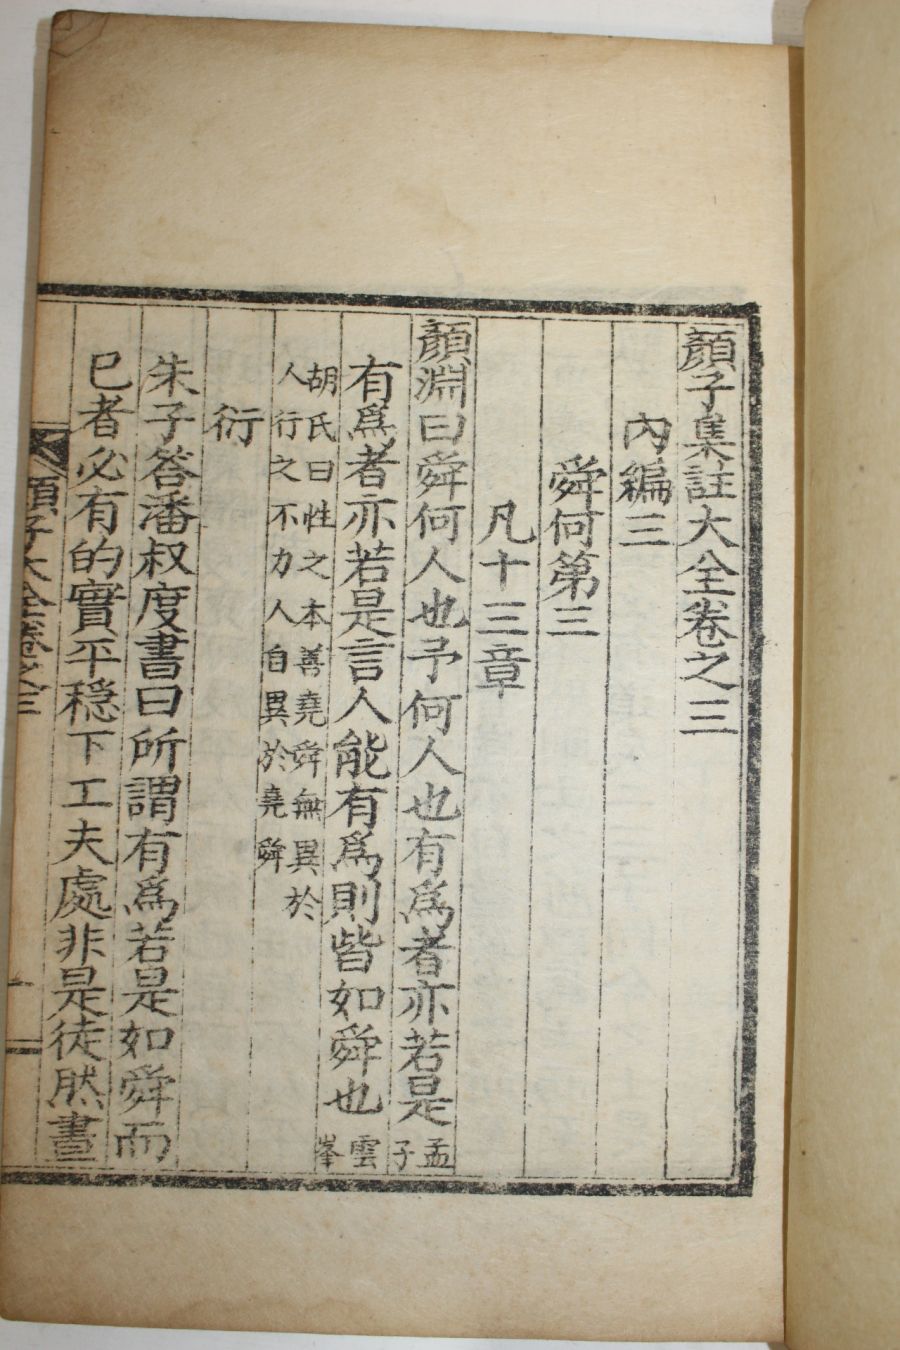 顏子集註大全卷之三
內編三
舜何第三
凡十三章
顏淵曰舜何人也予何人也有爲者亦若是孟子
有爲者亦若是言人能有爲則皆如舜也雲峯
胡氏曰性之本善堯舜無異於
人行之不力人自異於堯舜
衍
朱子答潘叔度書曰所謂有爲若是如舜而
已者必有的實平穩下工夫處非是徒然晝
顏子大全卷之三